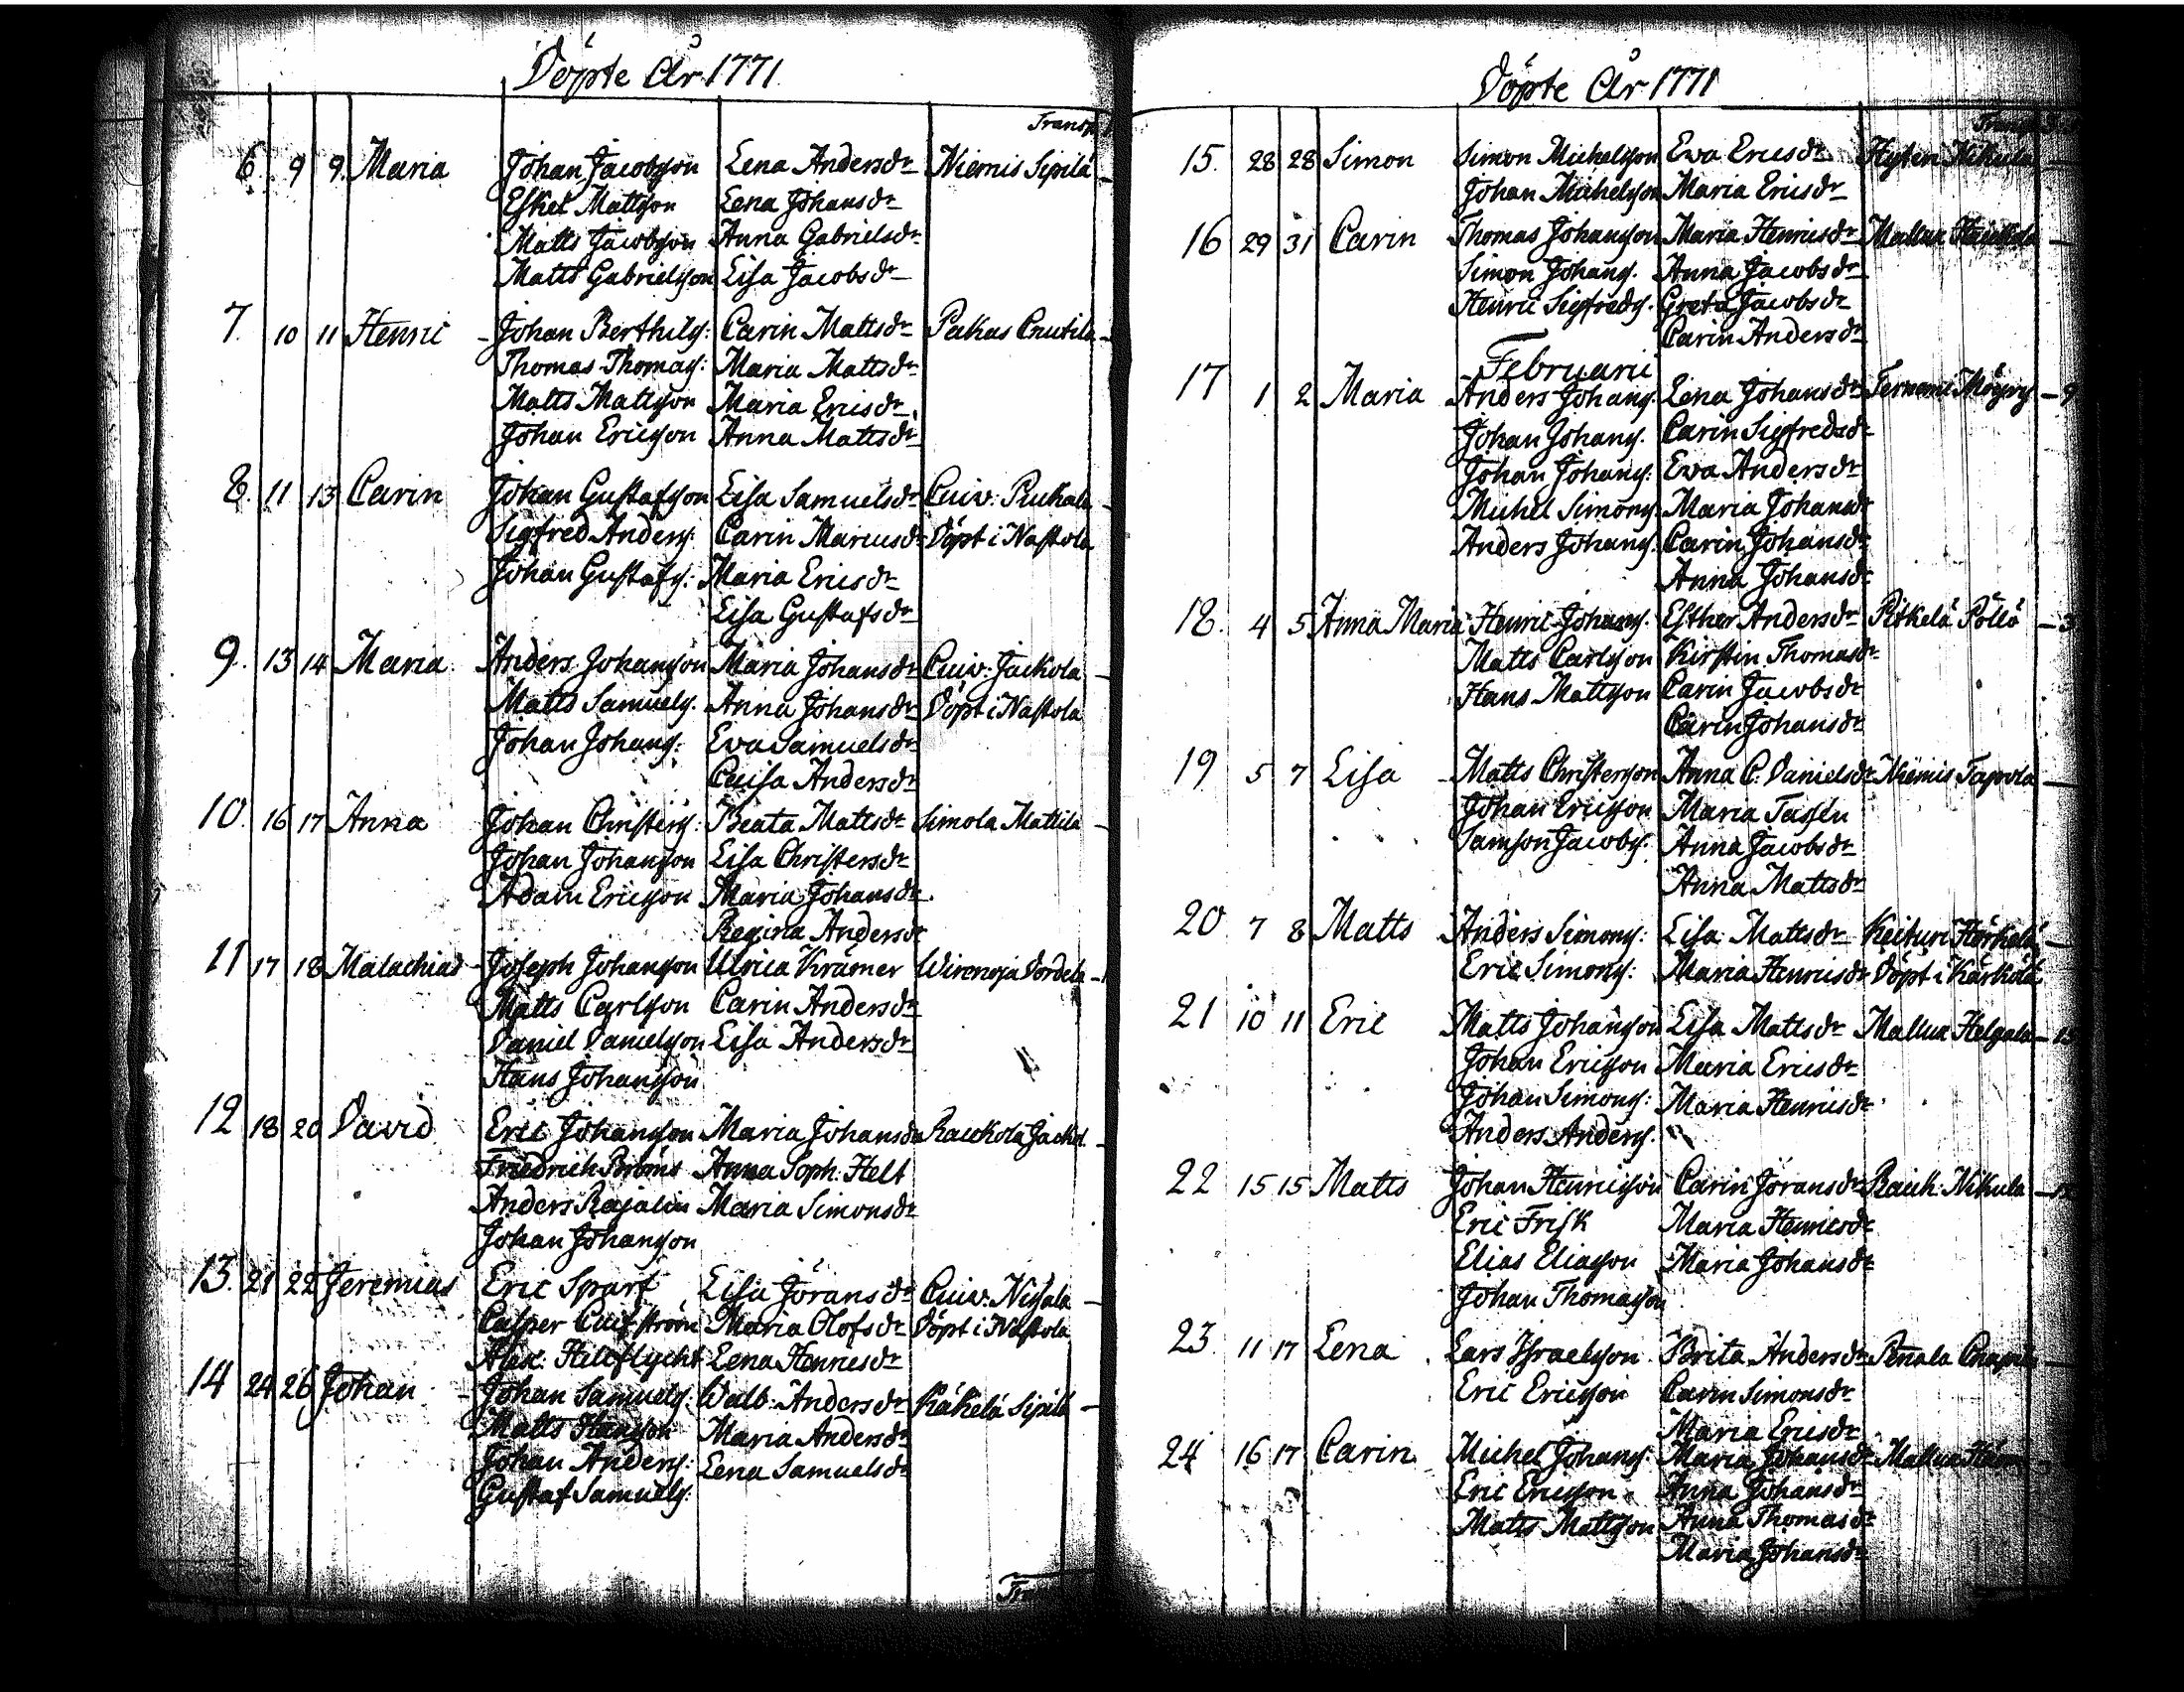 Döpte År 1771
Transp
6. 9 9. Maria Johan Jacobsson Lena Andersdr Niemis Sipilä
Eskel Mattsson Lena Johansdr
Matts Jacobsson Anna Gabrielsdr
Matts Gabrielsson Lisa Jacobsdr
7. 10 11 Henric Johan Berthils: Carin Mattsdr Pakas Cnutila
Thomas Thomas: Maria Mattsdr
Matts Mattsson Maria Ericsdr
Johan Ericsson Anna Mattsdr
8. 11 13 Carin Johan Gustafsson Lisa Samuelsdr Cuiv: Puckala
Sigfred Anders: Carin Marcusdr Döpt i Nastola
Johan Gustafs: Maria Ericsdr
Lisa Gustafsdr
9. 13 14 Maria Anders Johansson Maria Johansdr Cuiv: Jackola
Matts Samuels. Anna Johansdr Döpt i Nastola
Johan Johans: Eva Samuelsdr
Caisa Andersdr
10. 16 17 Anna Johan Christers: Beata Mattsdr Simola Mattila
Johan Johansson Lisa Christersdr
Adam Ericsson Maria Johansdr
Regina Andersdr
11 17 18 Malachias Joseph Johansson Ulrica Krämer Wirenoja Dordela
Matts Carlsson Carin Andersdr
Daniel Danielsson Lisa Andersdr
Hans Johansson
12 18 20 David Eric Johansson Maria Johansdr Raickola Jackol
Friedrich Anna Soph. Helt
Anders Rajalin Maria Simonsdr
Johan Johansson
13. 21 22 Jeremias Eric Sparf Lisa Jöransdr Cuiv: Nissala
Casper Maria Olofsdr Döpt i Nastola
Alex: Hellflycht Lena Henricsdr
14 24 26 Johan Johan Samuels: Walb: Andersdr Käkelä Sipilä
Matts Hansson Maria Andersdr
Johan Anders: Lena Samuelsdr
Gustaf Samuels:
Döpte År 1771
15. 28 28 Simon Simon Michelsson Ewa Ericsdr Nikula
Johan Michelsson Maria Ericsdr
16 29 31 Carin Thomas Johansson Maria Henricsdr Mallua
Simon Johans. Anna Jacobsdr
Henric Sigfreds. Greta Jacobsdr
Carin Andersdr
Februarii
17 1 2 Maria Anders Johans. Lena Johansdr
Johan Johans. Carin Sigfredsdr
Johan Johans: Ewa Andersdr
Michel Simons. Maria Johansdr
Anders Johans. Carin Johansdr
Anna Johansdr
18. 4 5 Anna Maria Henric Johans. Esther Andersdr Pitkelä Pöllö
Matts Carlsson Kirstin Thomasdr
Hans Mattsson Carin Jacobsdr
Carin Johansdr
19 5 7 Lisa Matts Christersson Anna C: Danielsdr Niemis Taprola
Johan Ericsson Maria
Samson Jacobs. Anna Jacobsdr
Anna Mattsdr
20 7 8 Matts Anders Simons: Lisa Mattsdr Keituri
Eric Simons: Maria Henricsdr Döpt i Kärkölä
21 10 11 Eric Matts Johansson Lisa Mattsdr Mallua
Johan Ericsson Maria Ericsdr
Johan Simons: Maria Henricsdr
Anders Anders.
22 15 15 Matts Johan Henricsson Carin Jöransdr Raick: Nikula
Eric Frisk Maria Henricsdr
Elias Eliasson Maria Johansdr
Johan Thomasson
23. 11 17 Lena Lars Israelsson Brita Andersdr Pennala
Eric Ericsson Carin Simonsdr
Maria Ericsdr
24 16 17 Carin Michel Johans. Maria Johansdr Mallua
Eric Ericsson Anna Johansdr
Matts Mattsson Anna Thomasdr
Maria Johansdr